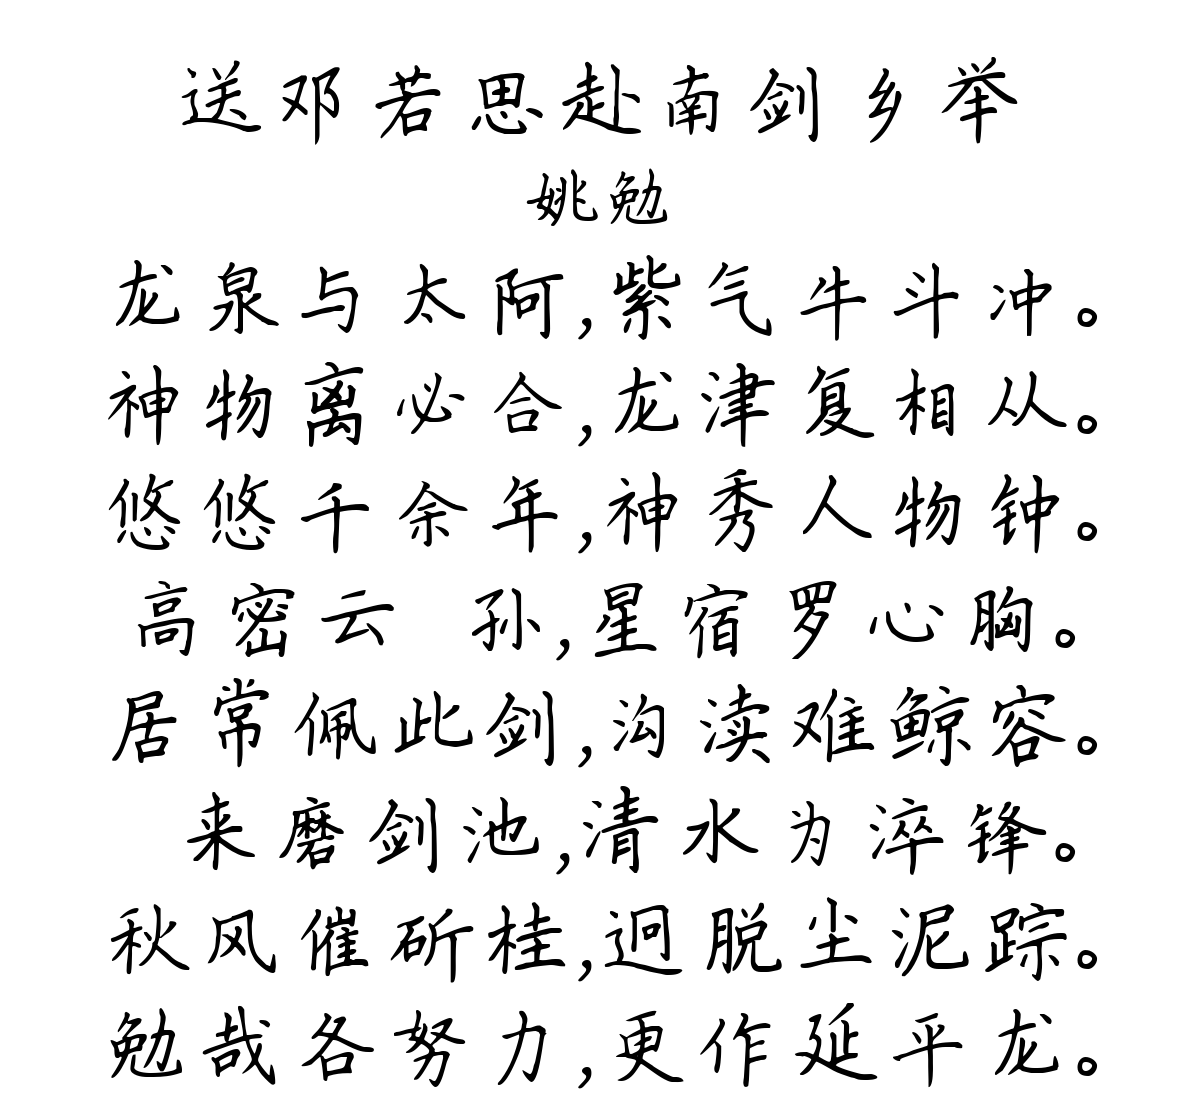 送邓若思赴南剑乡举
姚勉
龙泉与太阿,紫气牛斗冲。
神物离必合,龙津复相从。
悠悠千余年,神秀人物钟。
高密云 孙,星宿罗心胸。
居常佩此剑,沟渎难鲸容。
来磨剑池,清水为淬锋。
秋风催斫桂,迥脱尘泥踪。
勉哉各努力,更作延平龙。